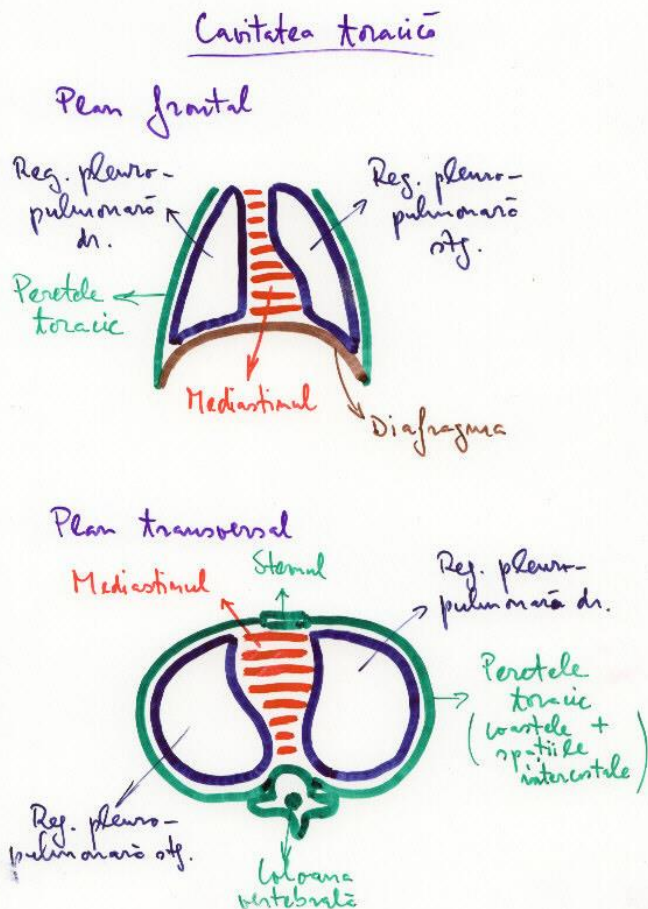 Cavitatea toracică
Plan frontal
Reg. pleuro-
pulmonară
dr.
Reg. pleuro-
pulmonară
stg.
Peretele
toracic
Mediastinul
Diafragma
Plan transversal
Mediastinul
Sternul
Reg. pleuro-
pulmonară dr.
Peretele
toracic
(coastele +
spațiile
intercostale)
Reg. pleuro-
pulmonară stg.
Coloana
vertebrală